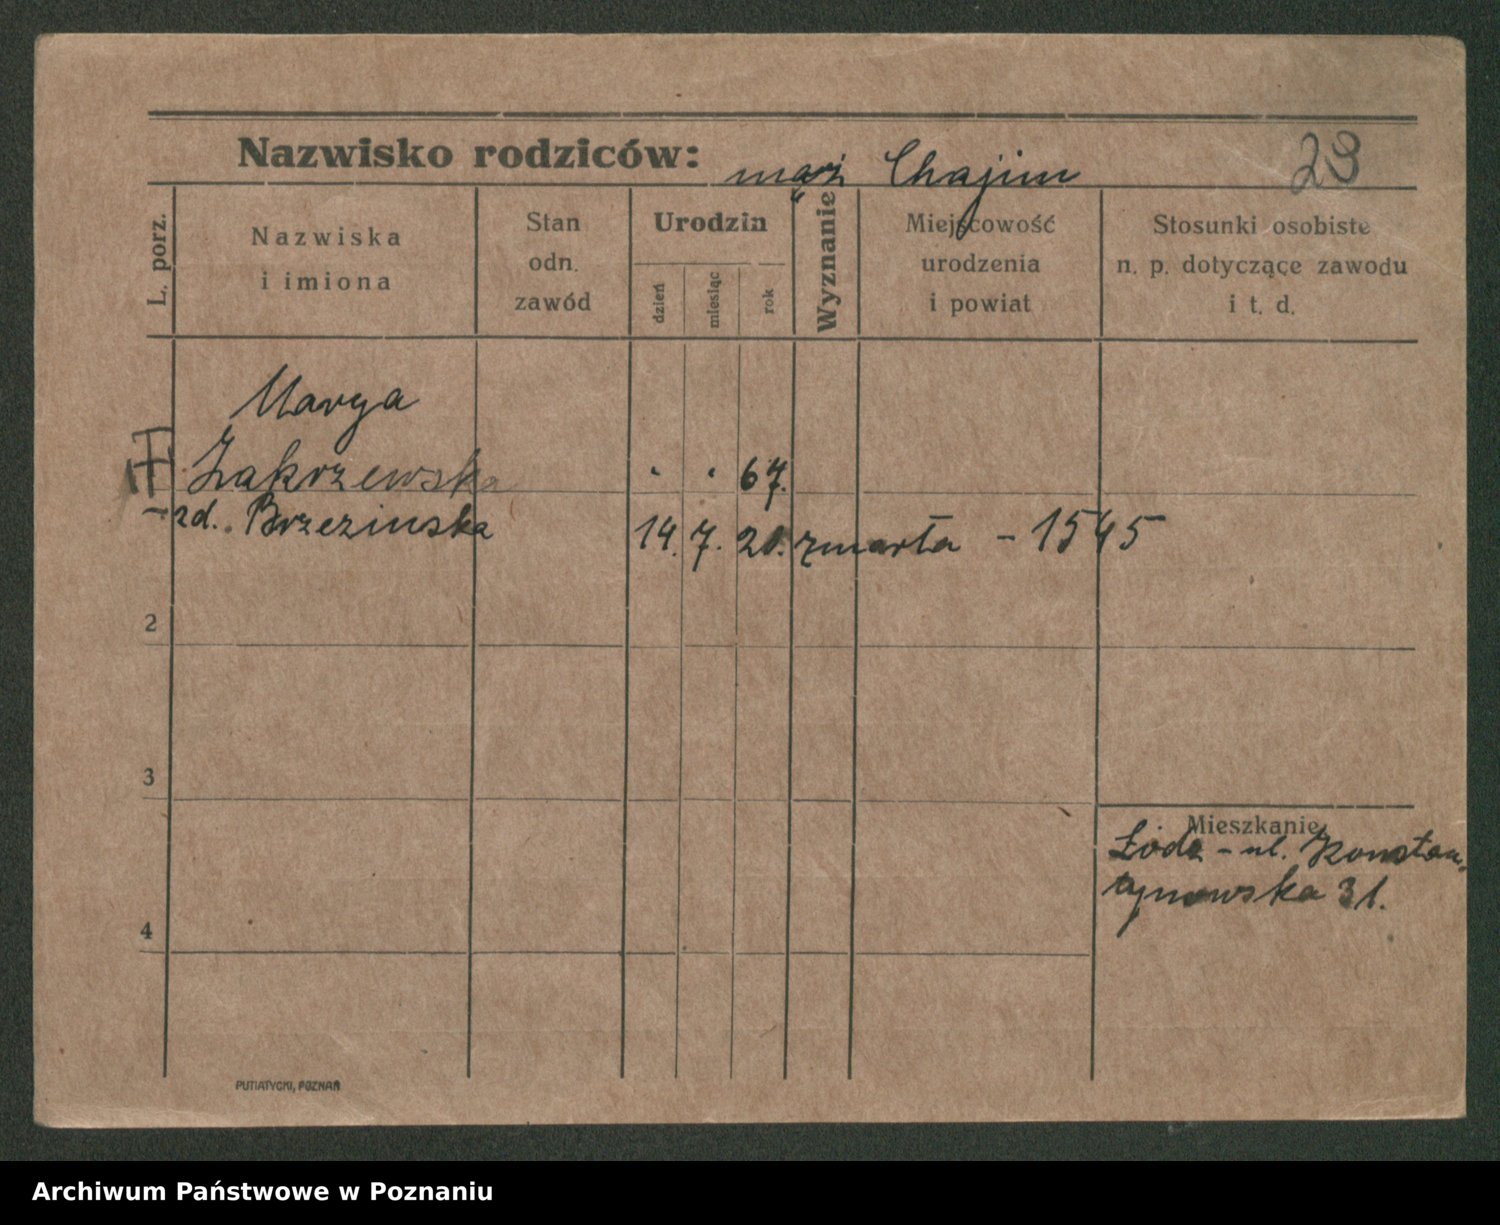 Nazwisko rodziców: mąż Chajim
29
L. porz.
Nazwiska
i imiona
Stan
odn.
zawód
Urodzin
dzień
miesiąc
rok
Wyznanie
Miejscowość
urodzenia
i powiat
Stosunki osobiste
n. p. dotyczące zawodu
i t. d.
Marya
Zakrzewska . . 67.
zd. Brzezinska 14. 7. 20. zmarła - 1545
2
3
Mieszkanie
Łódz - ul. Konstan
tynowska 31.
4
PUTIATYCKI, POZNAŃ
Archiwum Państwowe w Poznaniu